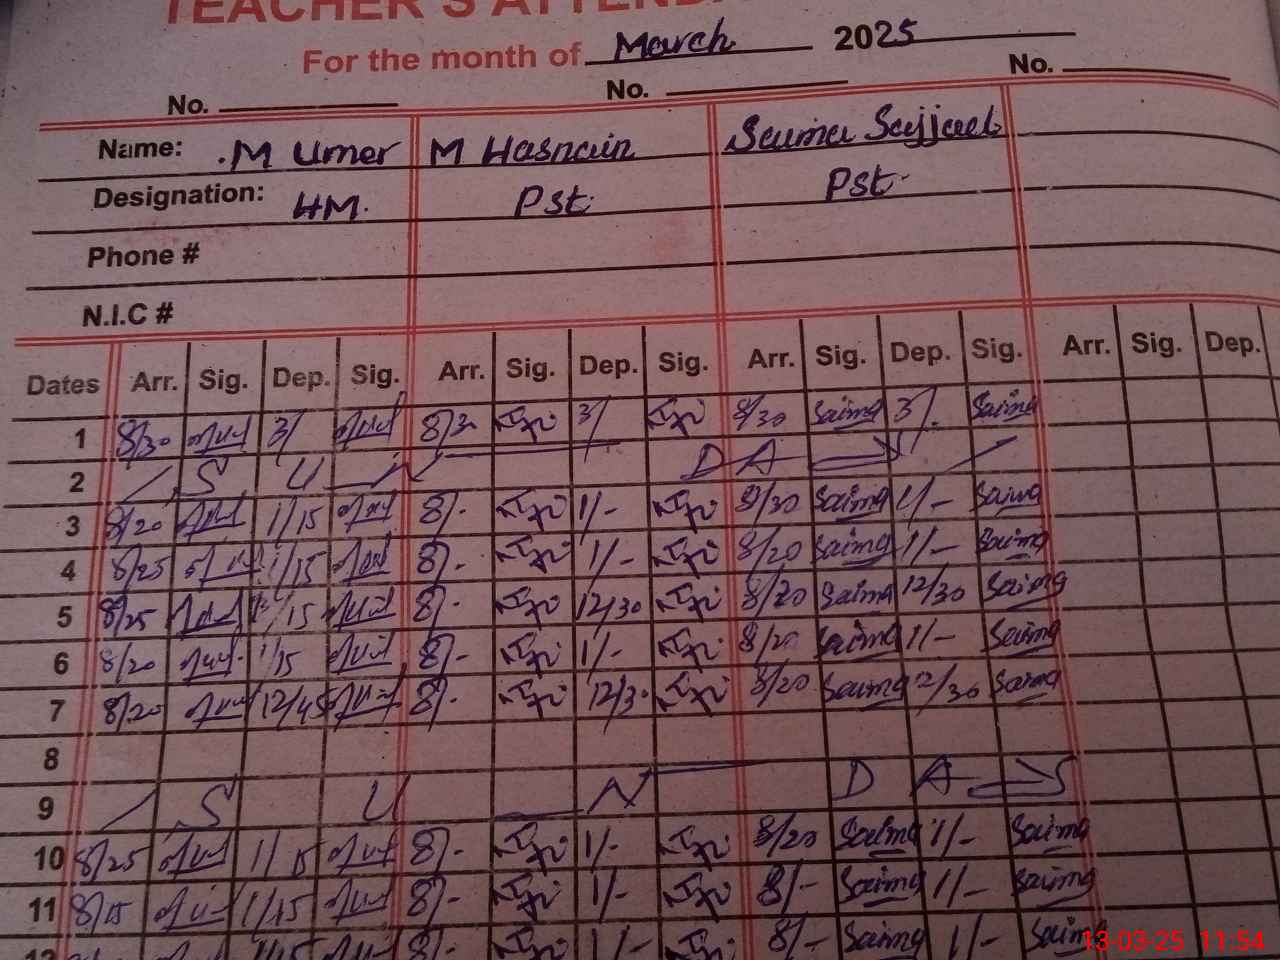 TEACHER'S ATTENDA
For the month of March 2025
No. No. No.
Name: M Umer M Hasnain Saima Sajjad
Designation: HM. Pst. Pst.
Phone #
N.I.C #
Dates Arr. Sig. Dep. Sig. Arr. Sig. Dep. Sig. Arr. Sig. Dep. Sig. Arr. Sig. Dep.
1 8/30 3/ 8/30 3/ 8/30 Saima 3/. Saima
2 S U N D A Y
3 8/20 1/15 8/- 1/- 8/30 Saima 1/- Saima
4 8/25 1/15 8/- 1/- 8/20 Saima 1/- Saima
5 8/25 /15 8/- 12/30 8/20 Saima 12/30 Saima
6 8/20 1/15 8/- 1/- 8/20 Saima 1/- Saima
7 8/20 12/45 8/- 12/30 8/20 Saima 12/30 Saima
8
9 S U N D A Y
10 8/25 1/15 8/- 1/- 8/20 Saima 1/- Saima
11 8/15 1/15 8/- 1/- 8/- Saima 1/- Saima
12 1/15 8/- 1/- 8/- Saima 1/-
13-03-25 11:54